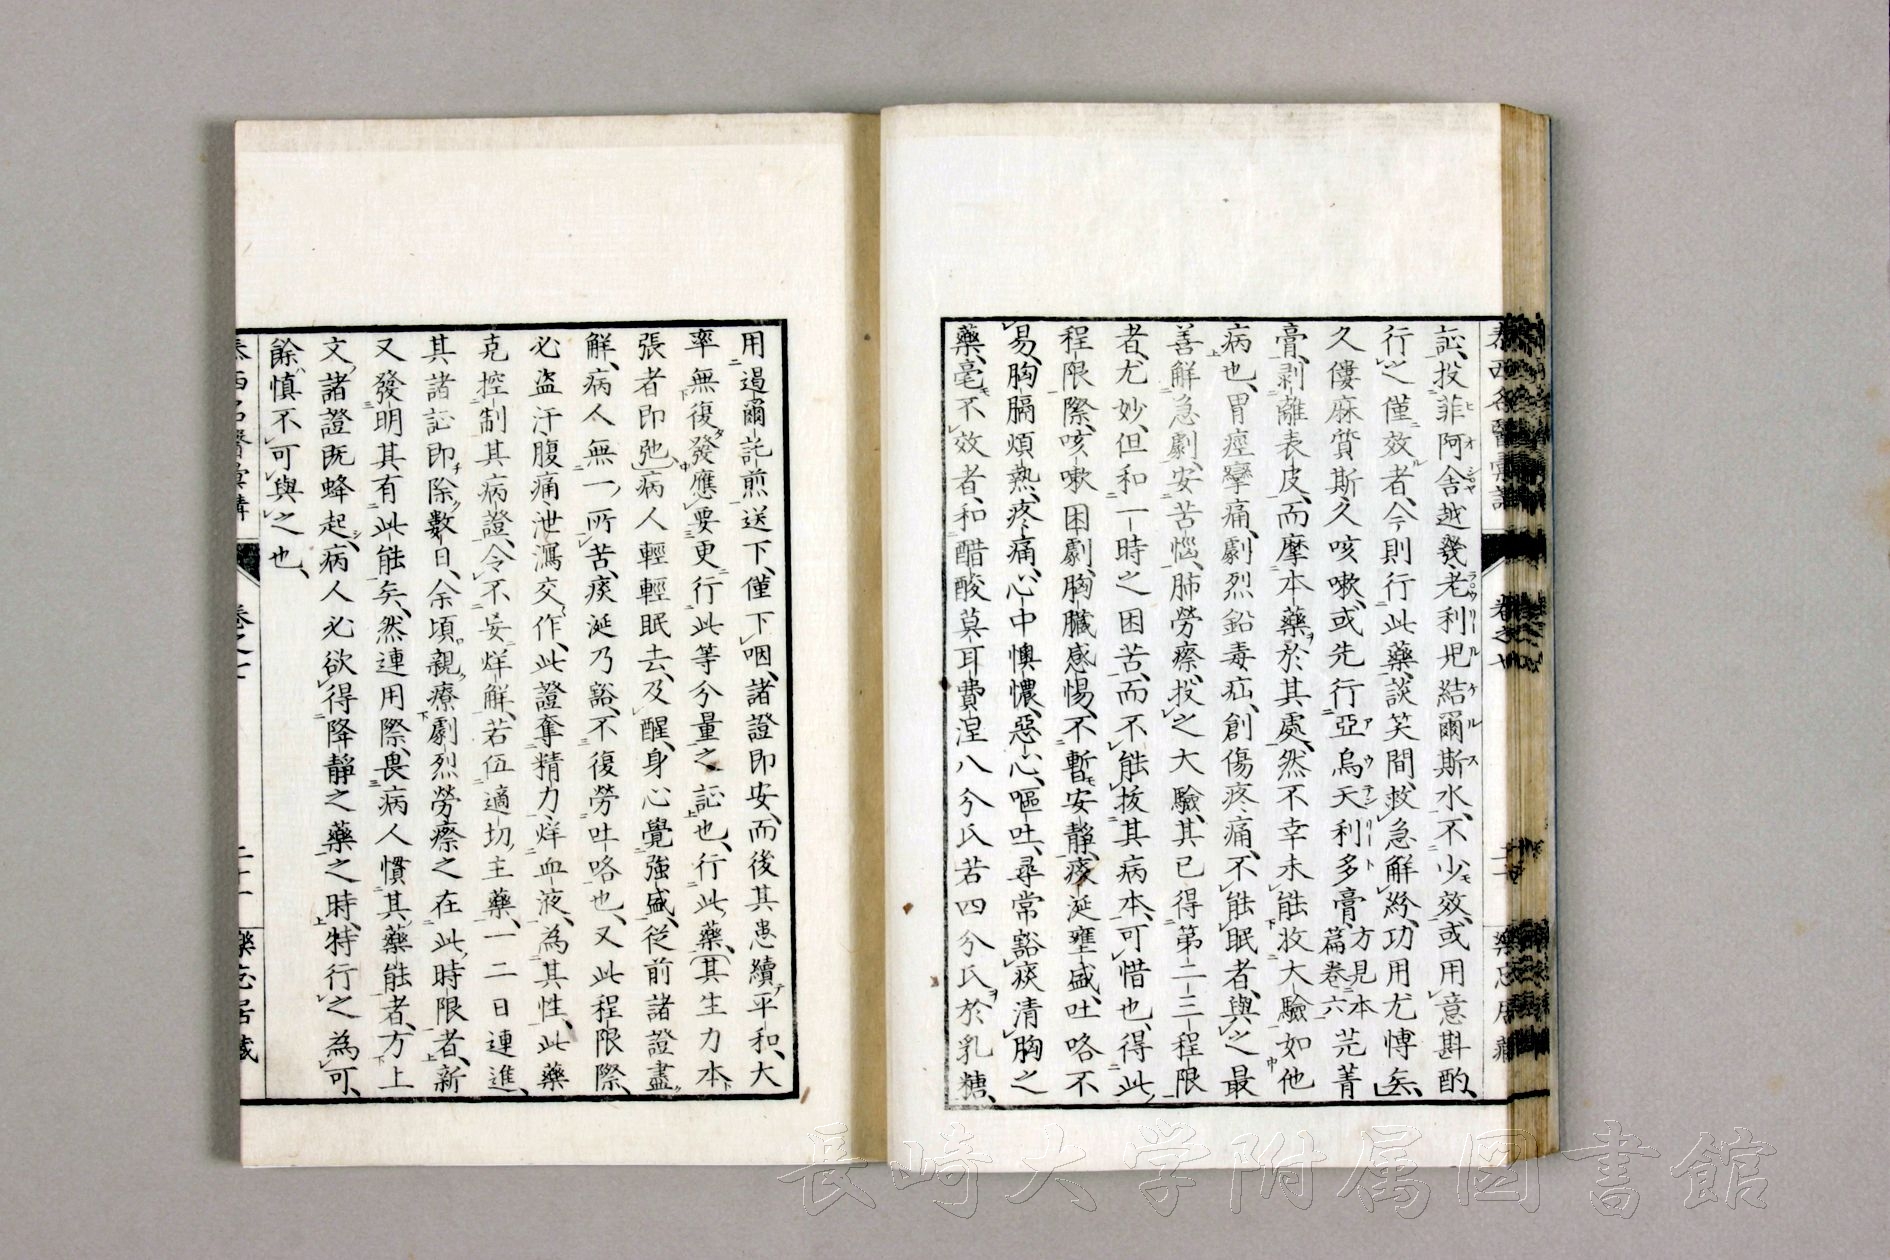 証、投菲阿舍越幾、老利児結爾斯水、不少效、或用意斟酌、
行之僅效者、今則行此藥、談笑間、救急解紛、功用尤愽矣、
久僂麻質斯、久咳嗽、或先行亞烏天利多膏、方見本篇卷六芫菁
膏、剥離表皮、而摩本藥於其處、然不幸未能收大驗如他
病也、胃痙攣痛、劇烈鉛毒疝、創傷疼痛、不能眠者、與之最
善解急劇、安苦惱、肺勞瘵、投之大驗、其已得第二三程限
者、尤妙、但和一時之困苦、而不能拔其病本、可惜也、得此
程限際、咳嗽困劇、胸臟感惕、不暫安靜、痰涎壅盛、吐咯不
易、胸膈煩熱、疼痛、心中懊憹、惡心、嘔吐、尋常豁痰清胸之
藥、毫不效者、和醋酸莫耳費涅八分氏若四分氏於乳糖、
用遏爾託煎送下、僅下咽、諸證即安、而後其患續平和、大
率無復發應、要更行此等分量之証也、行此藥、其生力本
張者即弛、病人輕輕眠去、及醒、身心覺強盛、從前諸證盡
解、病人無一所苦、痰涎乃豁、不復勞吐咯也、又此程限際、
必盜汗腹痛泄瀉交作、此證奪精力、烊血液、為其性、此藥
克控制其病證、令不妄烊解、若伍適切主藥、一二日連進、
其諸証即除、數日、余頃親療劇烈勞瘵之在此時限者、新
又發明其有此能矣、然連用際、畏病人慣其藥能者、方上
文、諸證既蜂起、病人必欲得降靜之藥之時、特行之為可、
餘慎不可與之也、
長崎大学附属図書館